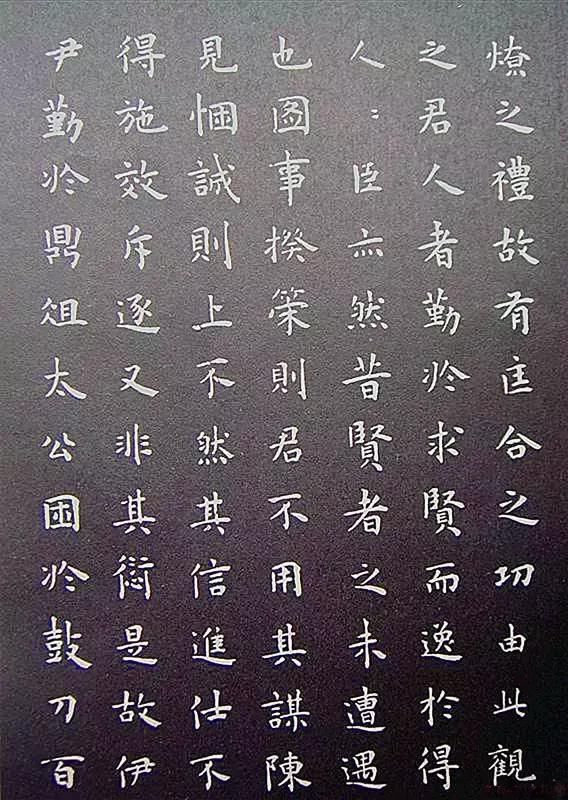 燎之禮故有匡合之功由此觀
之君人者勤於求賢而逸於得
人〻臣亦然昔賢者之未遭遇
也圖事揆策則君不用其謀陳
見悃誠則上不然其信進仕不
得施效斥逐又非其愆是故伊
尹勤於鼎俎太公困於鼓刀百